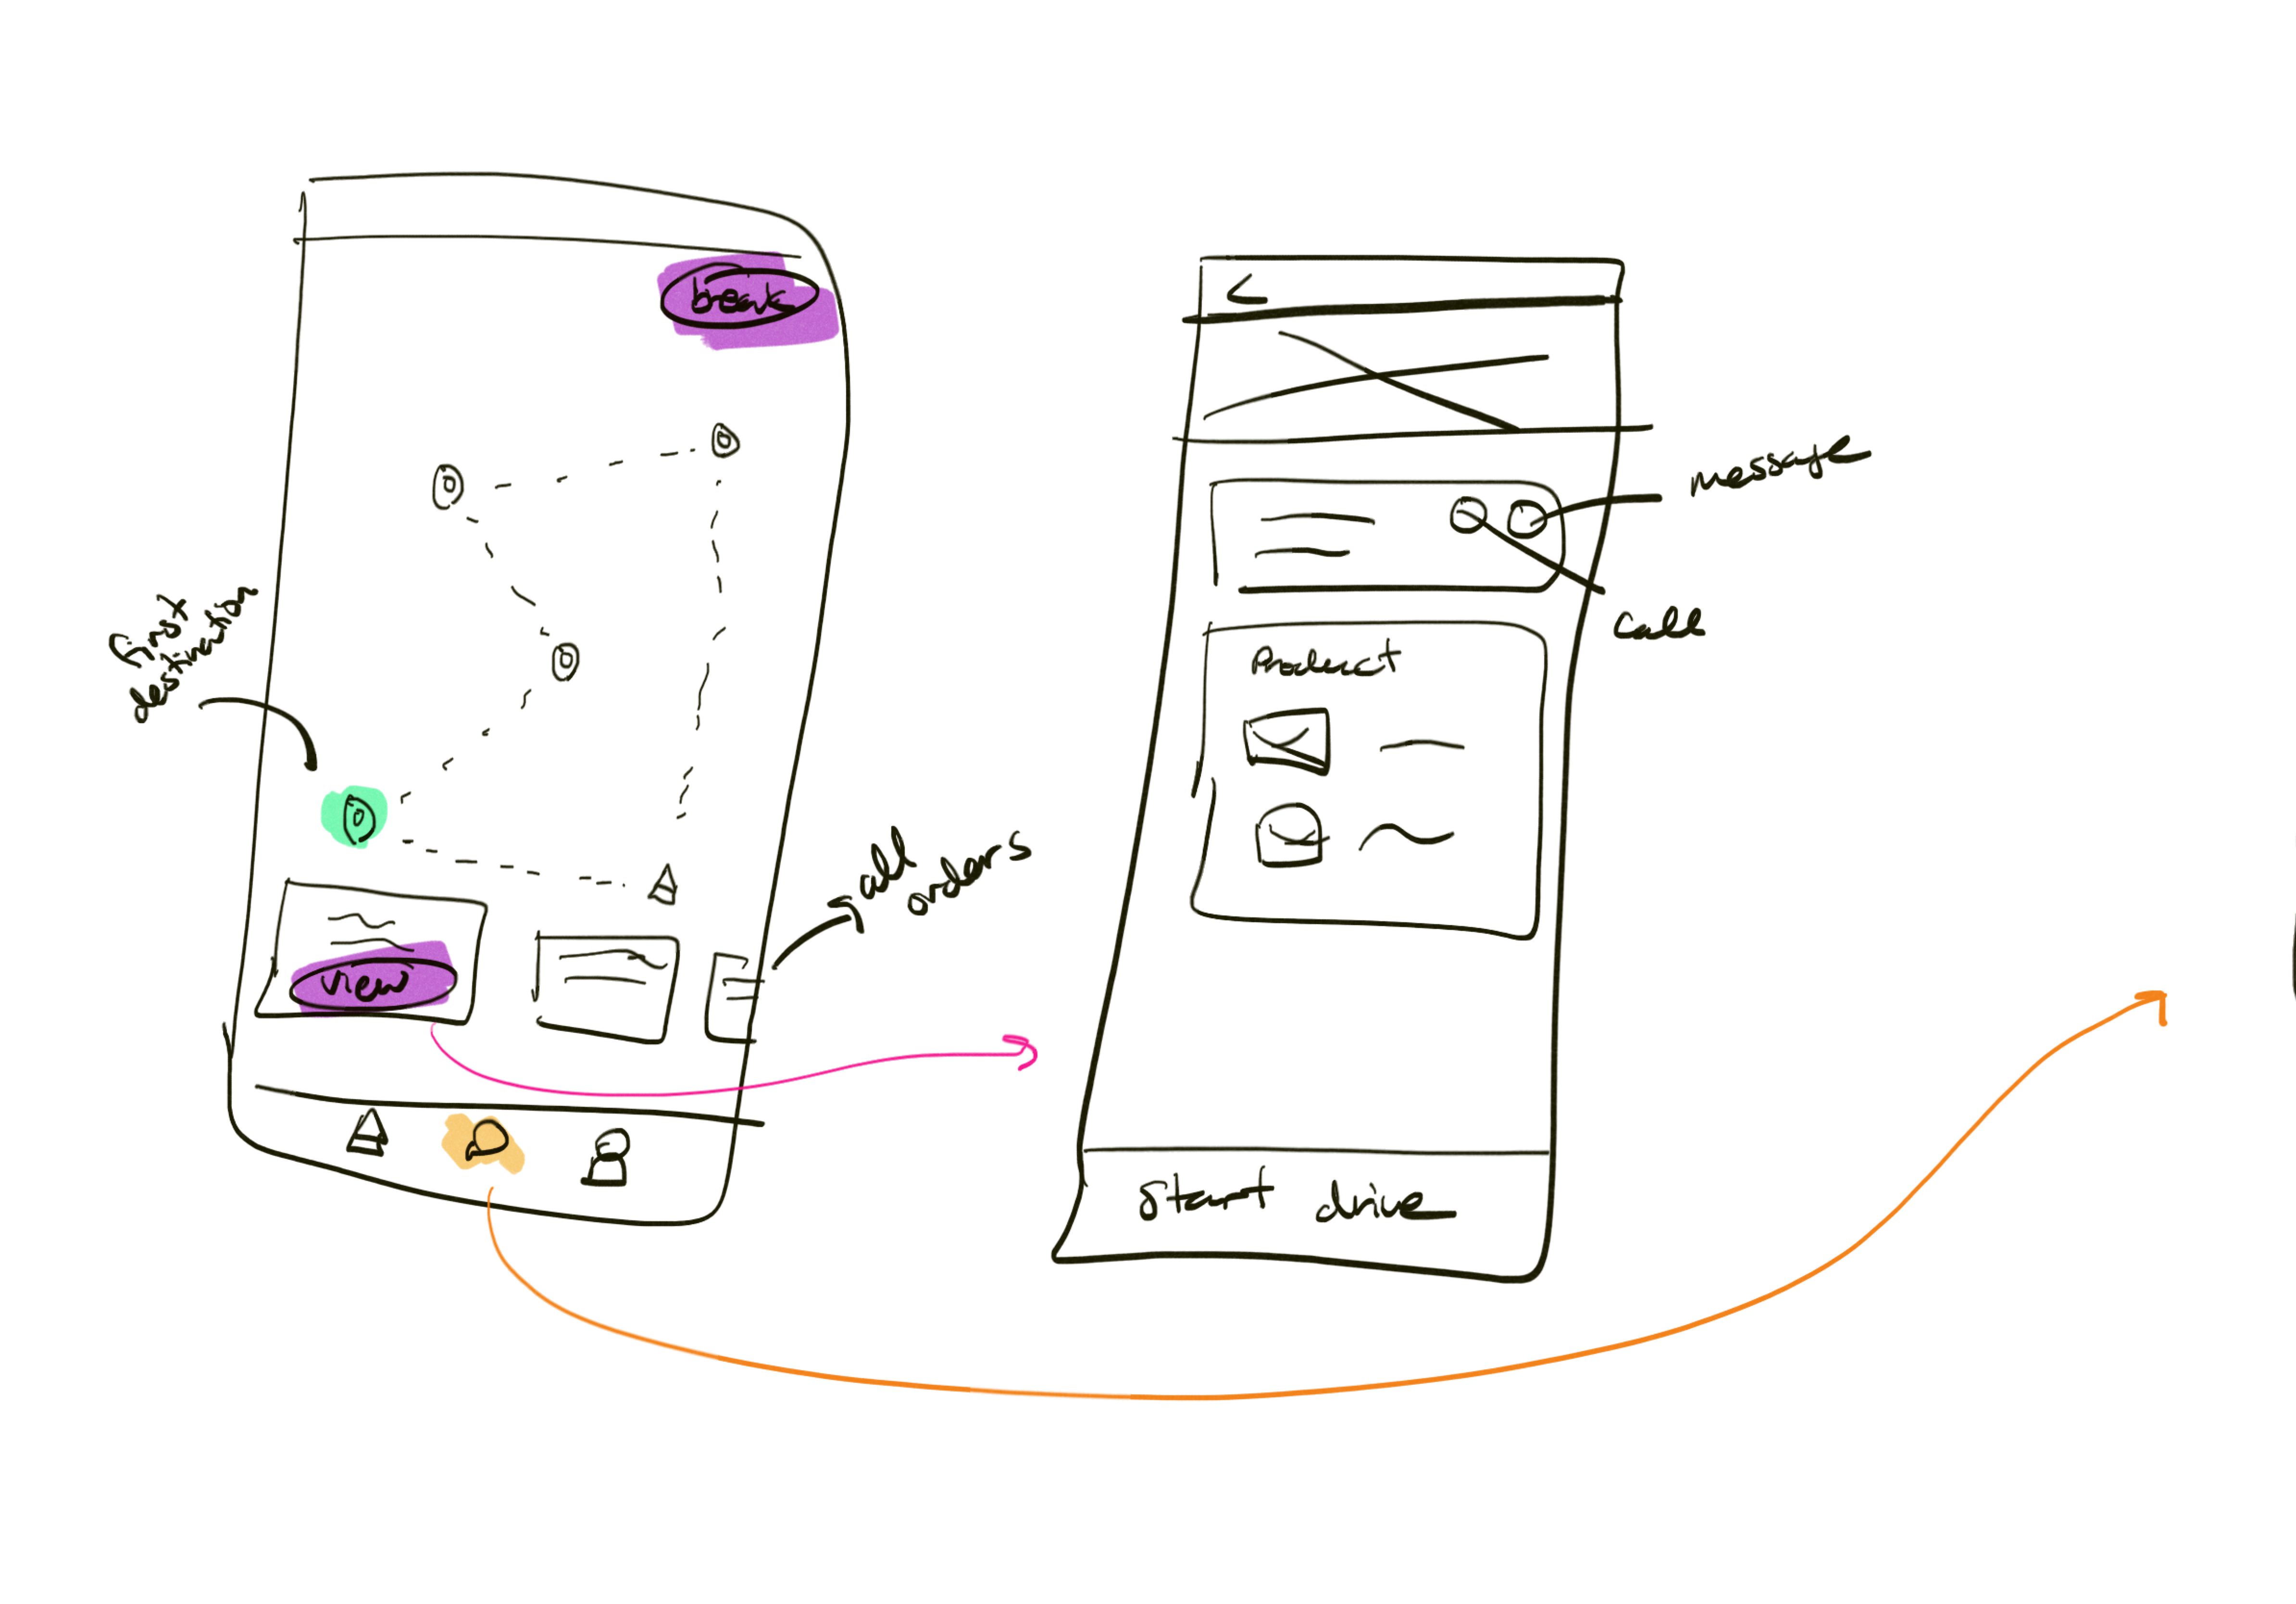 break
first
destination
view
all
orders
message
call
Product
Start drive